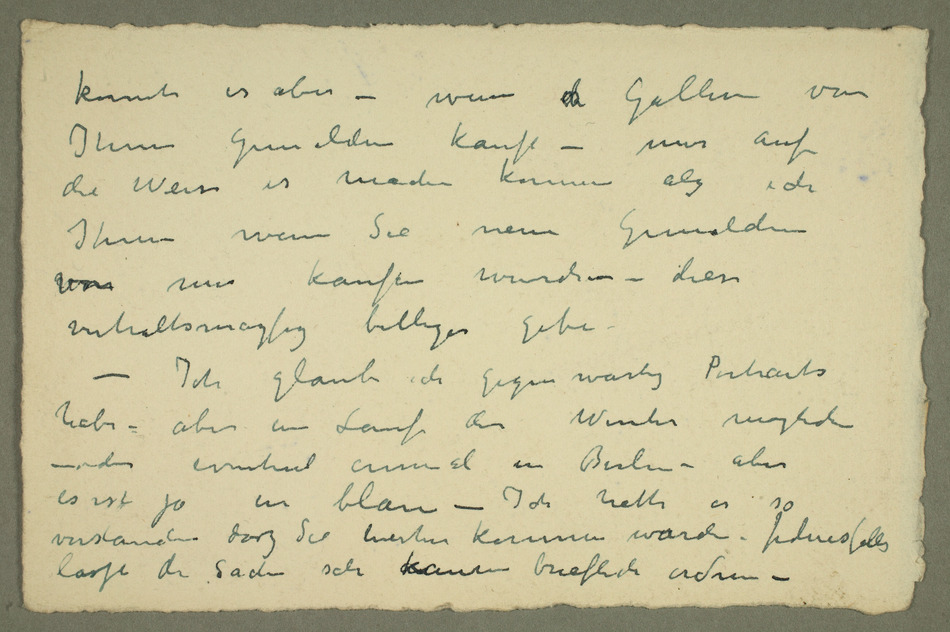 konnte es aber – wenn die Gallerie von
Ihnen Gemälden kauft – nur auf
die Weise es machen können als ich
Ihnen wenn Sie neue Gemälden
von mir kaufen würden – diese
verhältsmäßig billiger gebe.
– Ich glaube ich gegenwärtig Portraits
habe – aber im Laufe des Winter möglich
eventuel einmal in Berlin – aber
es ist ja im blauen – Ich hatte es so
verstanden dasz Sie hierher kommen würde. Jedenfalls
lasst die Sache sich kaum brieflich ordnen –